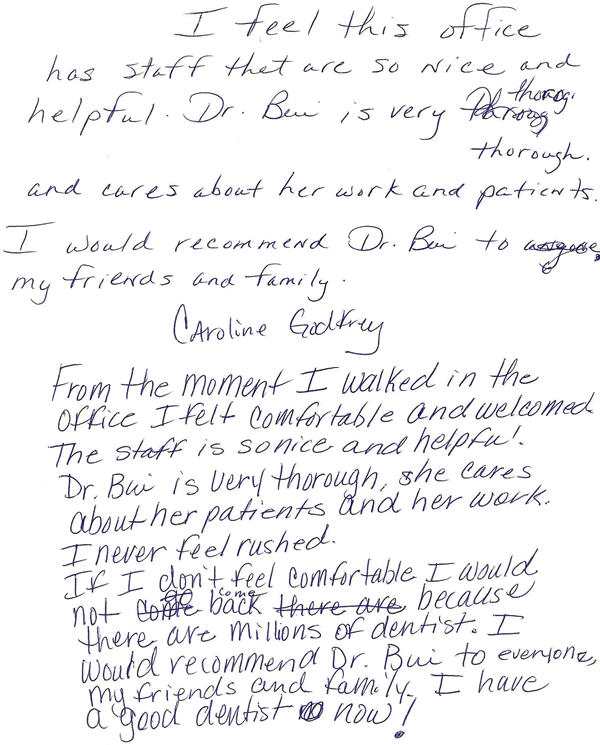 I feel this office
has staff that are so nice and
helpful. Dr. Bui is very thoroug
thorough.
and cares about her work and patients.
I would recommend Dr. Bui to
my friends and family.
Caroline Godfrey
From the moment I walked in the
office I felt comfortable and welcomed.
The staff is so nice and helpful.
Dr. Bui is very thorough, she cares
about her patients and her work.
I never feel rushed.
If I don't feel comfortable I would
not come back there are because
there are millions of dentist. I
would recommend Dr. Bui to everyone,
my friends and family. I have
a good dentist now!